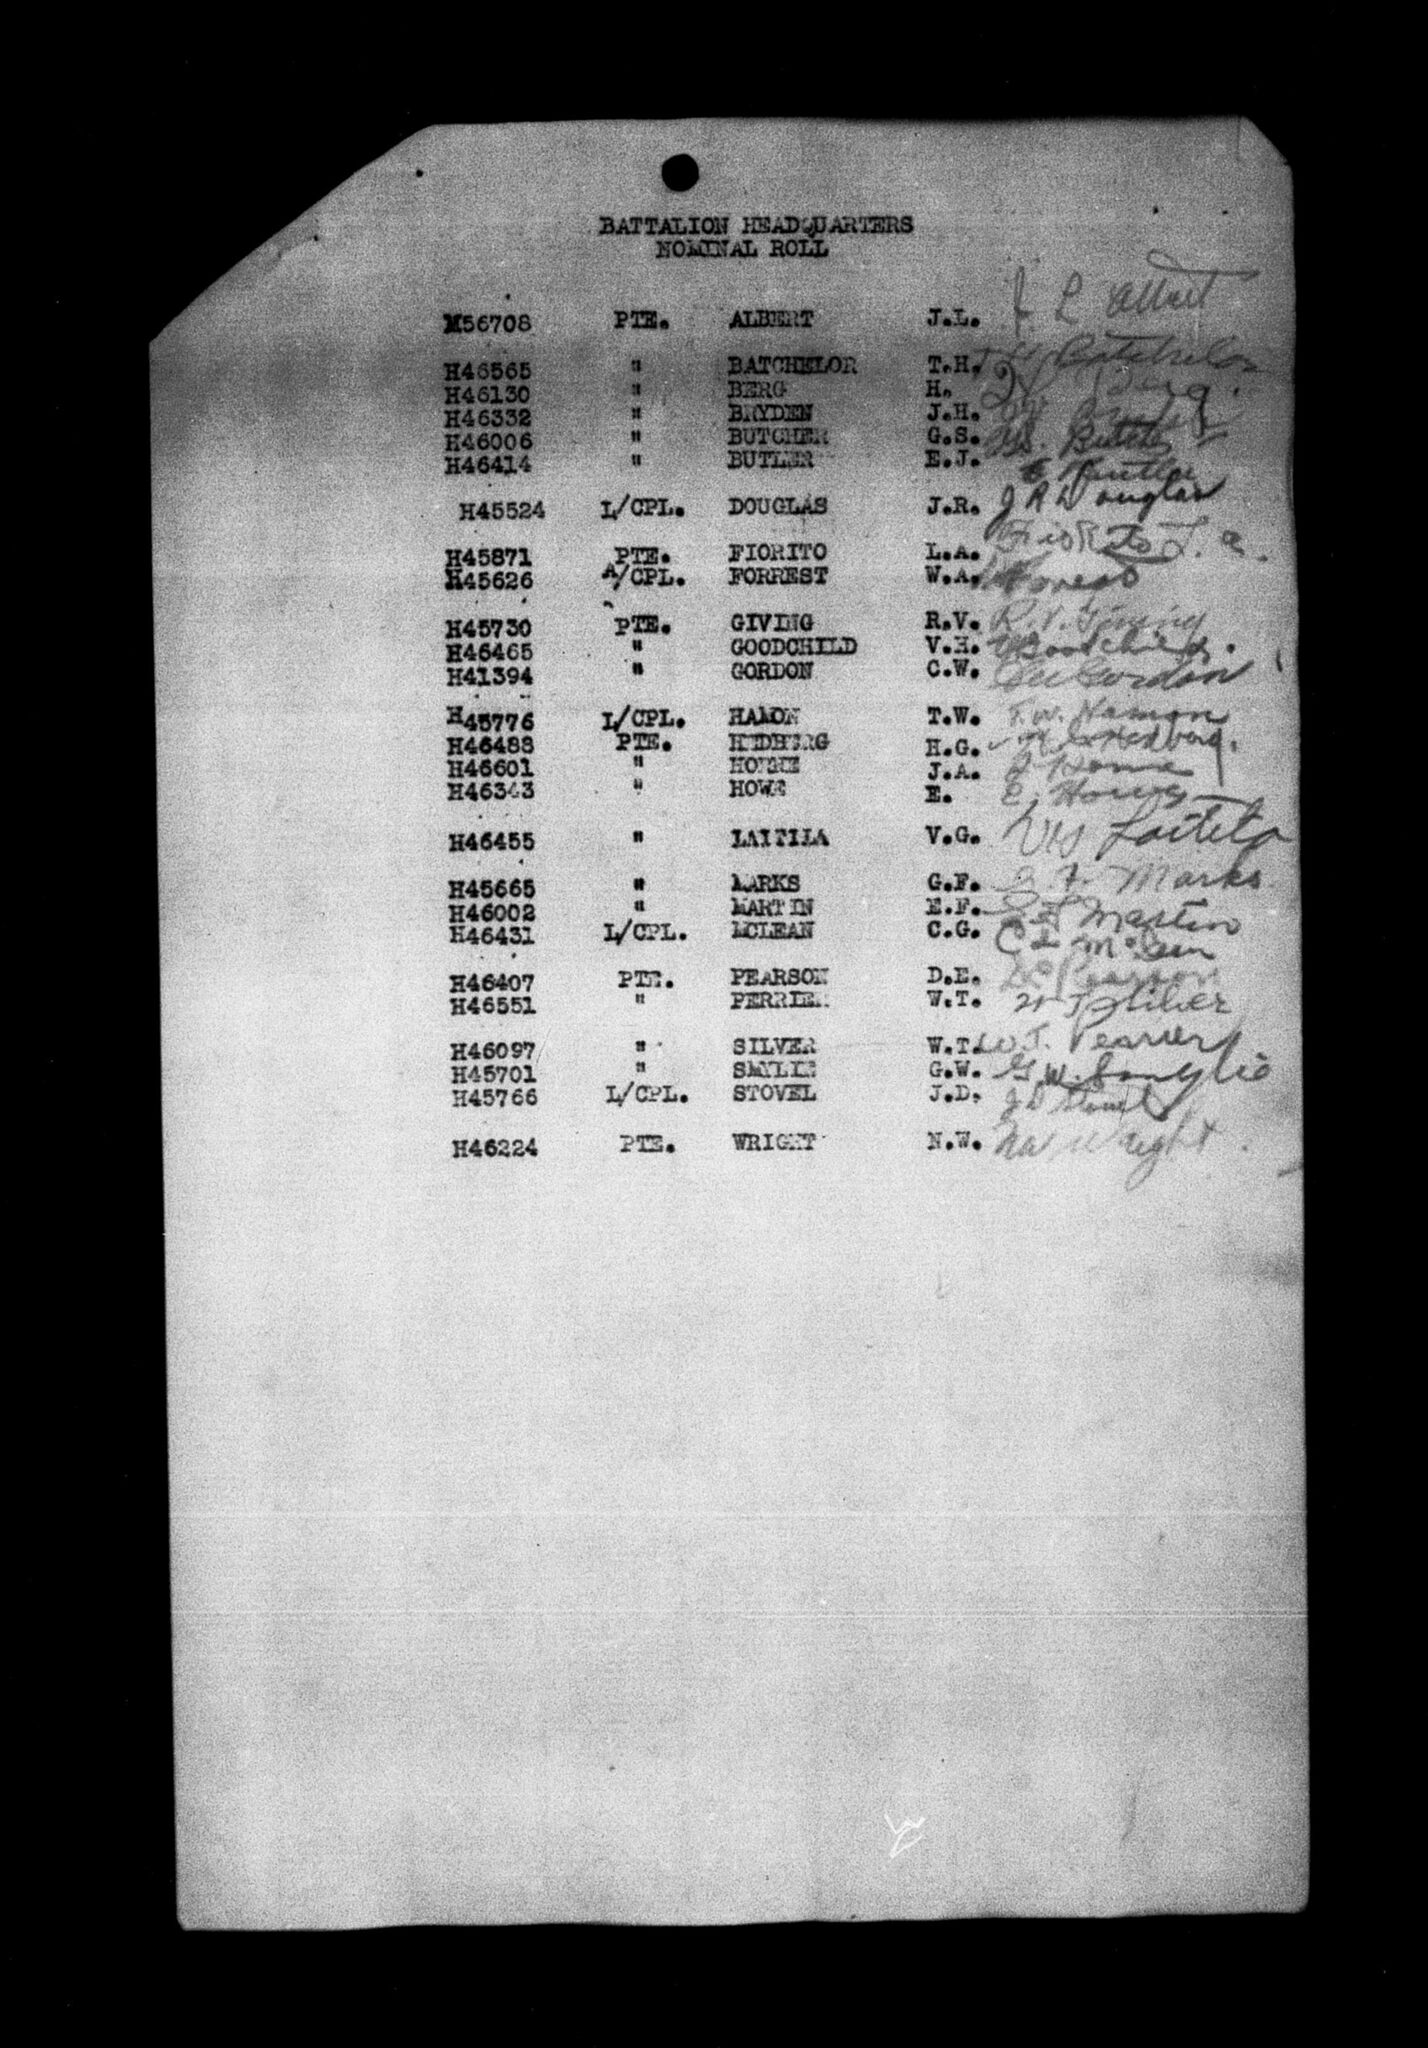 BATTALION HEADQUARTERS
NOMINAL ROLL
M56708 PTE. ALBERT J.L. J. L. Albert
H46565 " BATCHELOR T.H. T H Batchelor
H46130 " BERG H. Berg.
H46332 " BRYDEN J.H.
H46006 " BUTCHER G.S. Butcher
H46414 " BUTLER E.J. E Butler
H45524 L/CPL. DOUGLAS J.R. J R Douglas
H45871 PTE. FIORITO L.A. Fiorito L. a.
H45626 A/CPL. FORREST W.A. Forrest
H45730 PTE. GIVING R.V. R. V. Giving
H46465 " GOODCHILD V.H. V Goodchild.
H41394 " GORDON C.W. CW Gordon
H45776 L/CPL. HAMON T.W. T. W. Hamon
H46488 PTE. HEDBERG H.G. Hedberg.
H46601 " HORNE J.A. J Horne
H46343 " HOWE E. E. Howe
H46455 " LAITILA V.G. VG Laitila
H45665 " MARKS G.F. G F. Marks
H46002 " MARTIN E.F. E F Martin
H46431 L/CPL. MCLEAN C.G. C G McLean
H46407 PTE. PEARSON D.E. D E Pearson
H46551 " PERRIER W.T. W T Silver
H46097 " SILVER W.T. W. T. Perrier
H45701 " SMYLIE G.W. G. W. Smylie
H45766 L/CPL. STOVEL J.D. J D Stovel
H46224 PTE. WRIGHT N.W. NW Wright